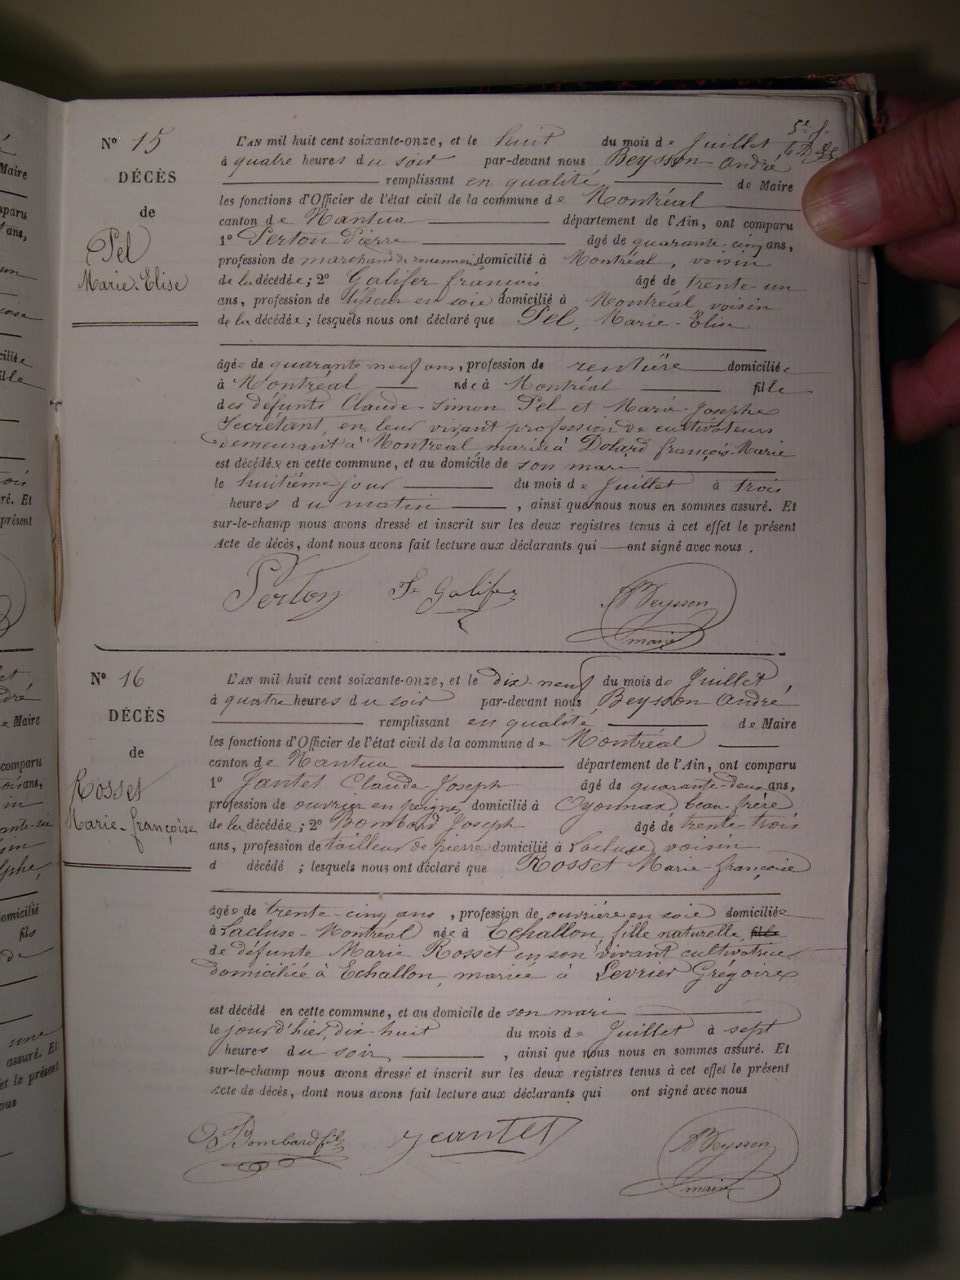 Maire
N° 15
DÉCÈS
de
Pel
Marie-Elise
L'AN mil huit cent soixante-onze, et le huit du mois de Juillet
à quatre heures du soir par-devant nous Beysson André
remplissant en qualité de Maire
les fonctions d'Officier de l'état civil de la commune de Montréal
canton de Nantua département de l'Ain, ont comparu
1° Perton Pierre âgé de quarante-cinq ans,
profession de marchand de domicilié à Montréal, voisin
de la décédée; 2° Galifer françois âgé de trente-un
ans, profession de tisseur en soie domicilié à Montréal voisin
de la décédée; lesquels nous ont déclaré que Pel, Marie-Elise
âgée de quarante-neuf ans, profession de rentière domiciliée
à Montréal née à Montréal fille
des défunts Claude-Simon Pel et Marie-Josephe
Secrétant, en leur vivant profession de cultivateurs
demeurant à Montréal, mariée à françois-Marie
est décédée en cette commune, et au domicile de son mari
le huitième jour du mois de Juillet à trois
heures du matin, ainsi que nous nous en sommes assuré. Et
sur-le-champ nous avons dressé et inscrit sur les deux registres tenus à cet effet le présent
Acte de décès, dont nous avons fait lecture aux déclarants qui ont signé avec nous.
Perton fs Galifer Beysson
maire
N° 16
DÉCÈS
de
Rosset
Marie-françoise
L'AN mil huit cent soixante-onze, et le dix neuf du mois de Juillet
à quatre heures du soir par-devant nous Beysson André
remplissant en qualité de Maire
les fonctions d'Officier de l'état civil de la commune de Montréal
canton de Nantua département de l'Ain, ont comparu
1° Jantet Claude-Joseph âgé de quarante-deux ans,
profession de ouvrier en peignes domicilié à Oyonnax beau-frère
de la décédée; 2° Bombard Joseph âgé de trente-trois
ans, profession de tailleur de pierre domicilié à Lacluse voisin
d décédé ; lesquels nous ont déclaré que Rosset Marie-françoise
âgée de trente-cinq ans, profession de ouvrière en soie domiciliée
à Lacluse-Montréal née à Echallon, fille naturelle fille
de défunte Marie Rosset en son vivant cultivatrice
domiciliée à Echallon, mariée à Levrier Grégoire
est décédé en cette commune, et au domicile de son mari
le jour d'hier, dix-huit du mois de Juillet à sept
heures du soir, ainsi que nous nous en sommes assuré. Et
sur-le-champ nous avons dressé et inscrit sur les deux registres tenus à cet effet le présent
Acte de décès, dont nous avons fait lecture aux déclarants qui ont signé avec nous
Bombard fils Jantet Beysson
maire